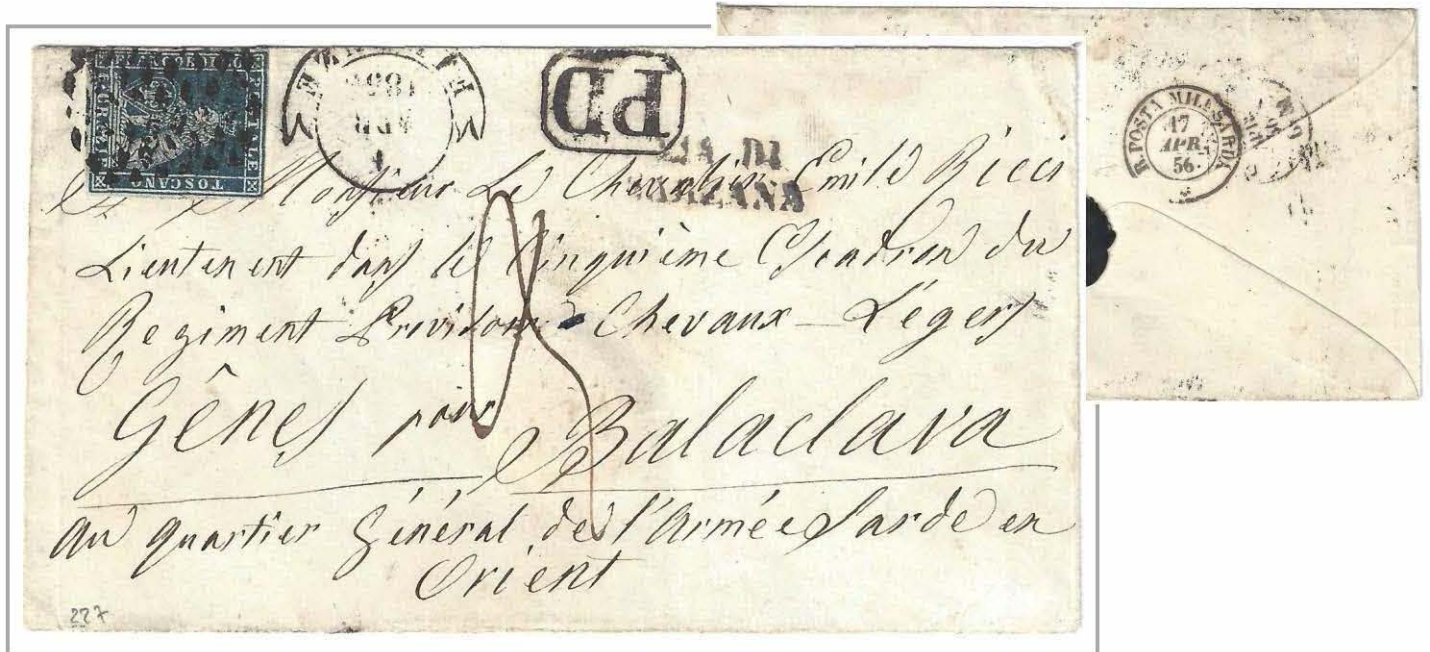 FRANCOBOLLO
POSTALE
TOSCANO
FIRENZE
APR
PD
VIA DI
SARZANA
Monsieur Le Chevalier Emile Ricci
Lieutenent dans le Cinquième Escadron du
Regiment Provisoire Chevaux-Légers
Gênes pour Balaclava
au quartier Général de l'Armée Sarde en
Orient
227
R. POSTA MILE SARDA
17
APR.
56.